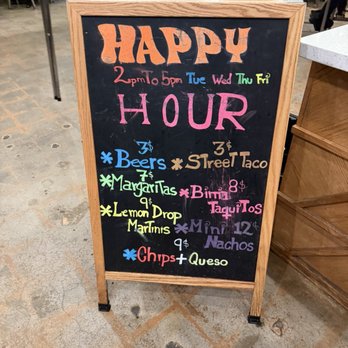 HAPPY
2pm To 5pm Tue Wed Thu Fri
HOUR
3$ 3$
*Beers *Street Taco
7$
*Margaritas *Birria 8$
Taquitos
9$
*Lemon Drop Martinis
*Mini 12$
Nachos
9$
*Chips + Queso